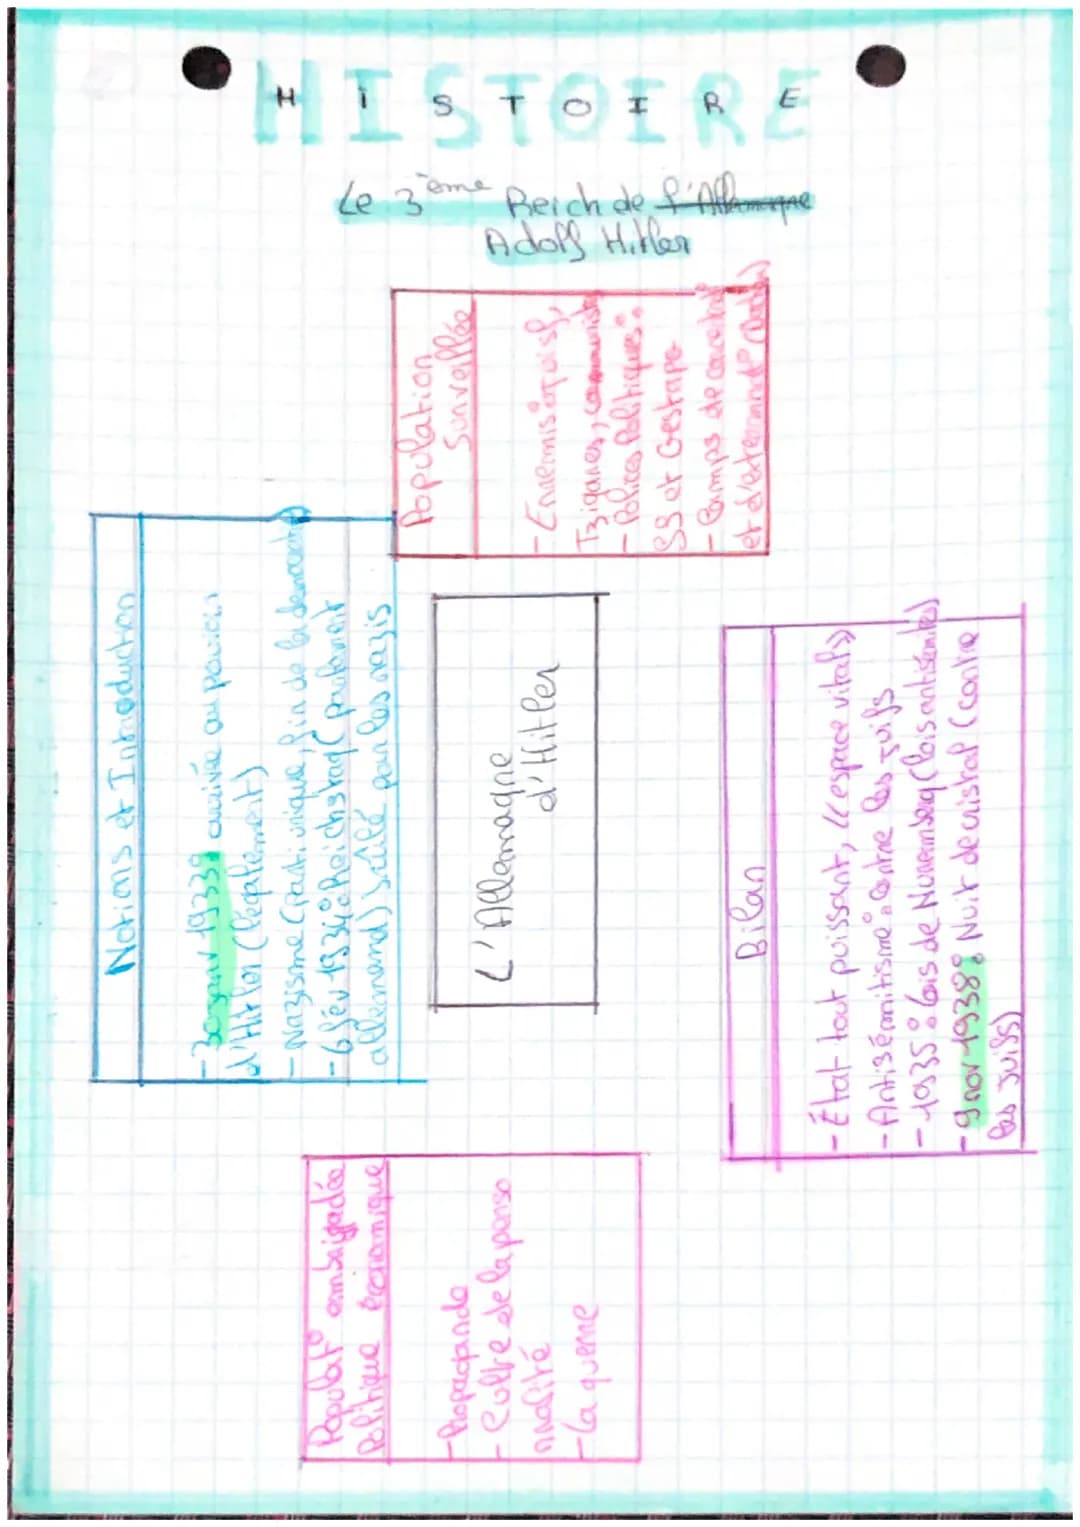 HISTOIRE
Le 3ème Reich de l'Allemagne
Adolf Hitler
Notions et Introduction
- 30 janv 1933: arrivée au pouvoir
d'Hitler (légalement)
- Nazisme (parti unique, fin de la démocratie)
- 6 fév 1934: Reichstag (parlement
allemand) brûlé par les nazis
Population
Surveillée
- Ennemis: juifs,
Tziganes, communistes
- Polices Politiques:
SS et Gestapo
- Camps de concentrat°
et d'exterminat°
L'Allemagne
d'Hitler
Populat° embrigadée
Politique économique
- Propagande
- Culte de la perso
nnalité
- La guerre
Bilan
- État tout puissant, «espace vital»
- Antisémitisme: contre les juifs
- 1935: lois de Nuremberg (lois antisémites)
- 9 nov 1938: Nuit de cristal (contre
les juifs)